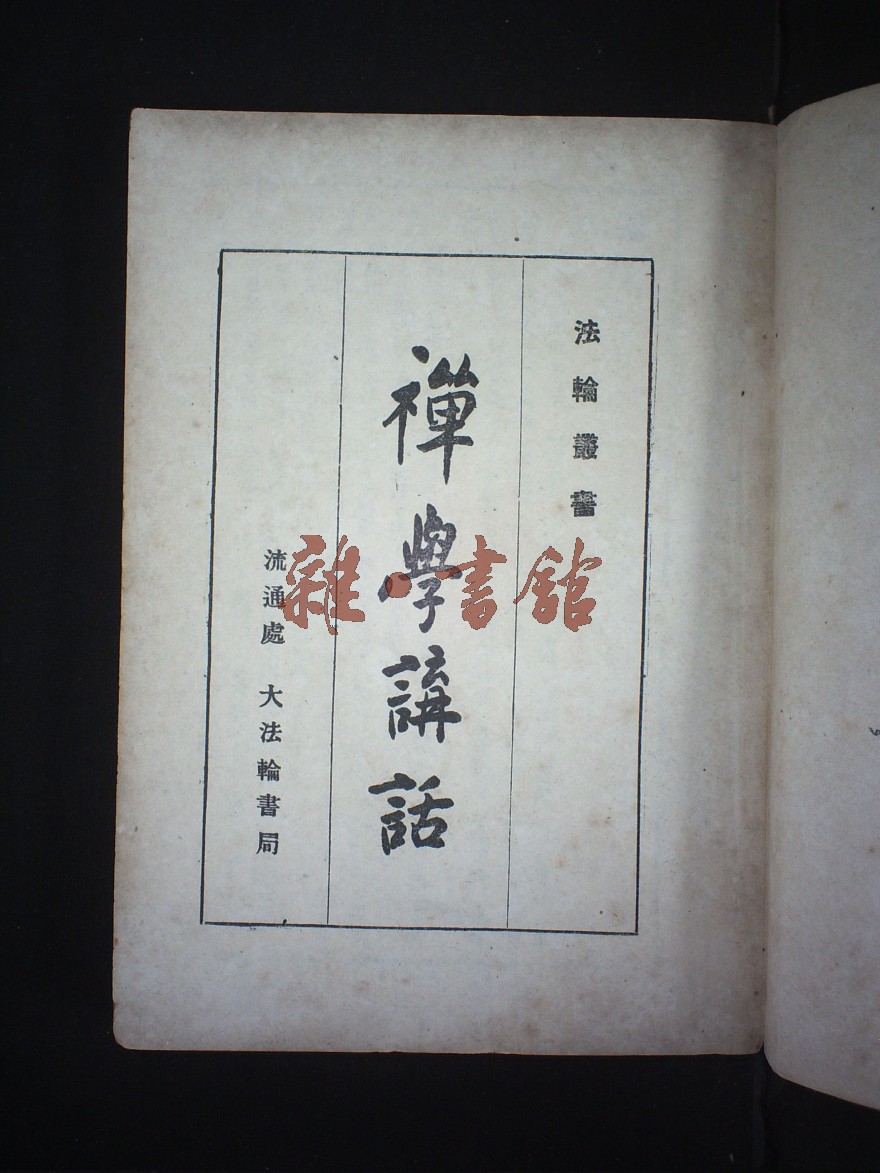 法輪叢書
禪學講話
流通處　大法輪書局
雜·書館